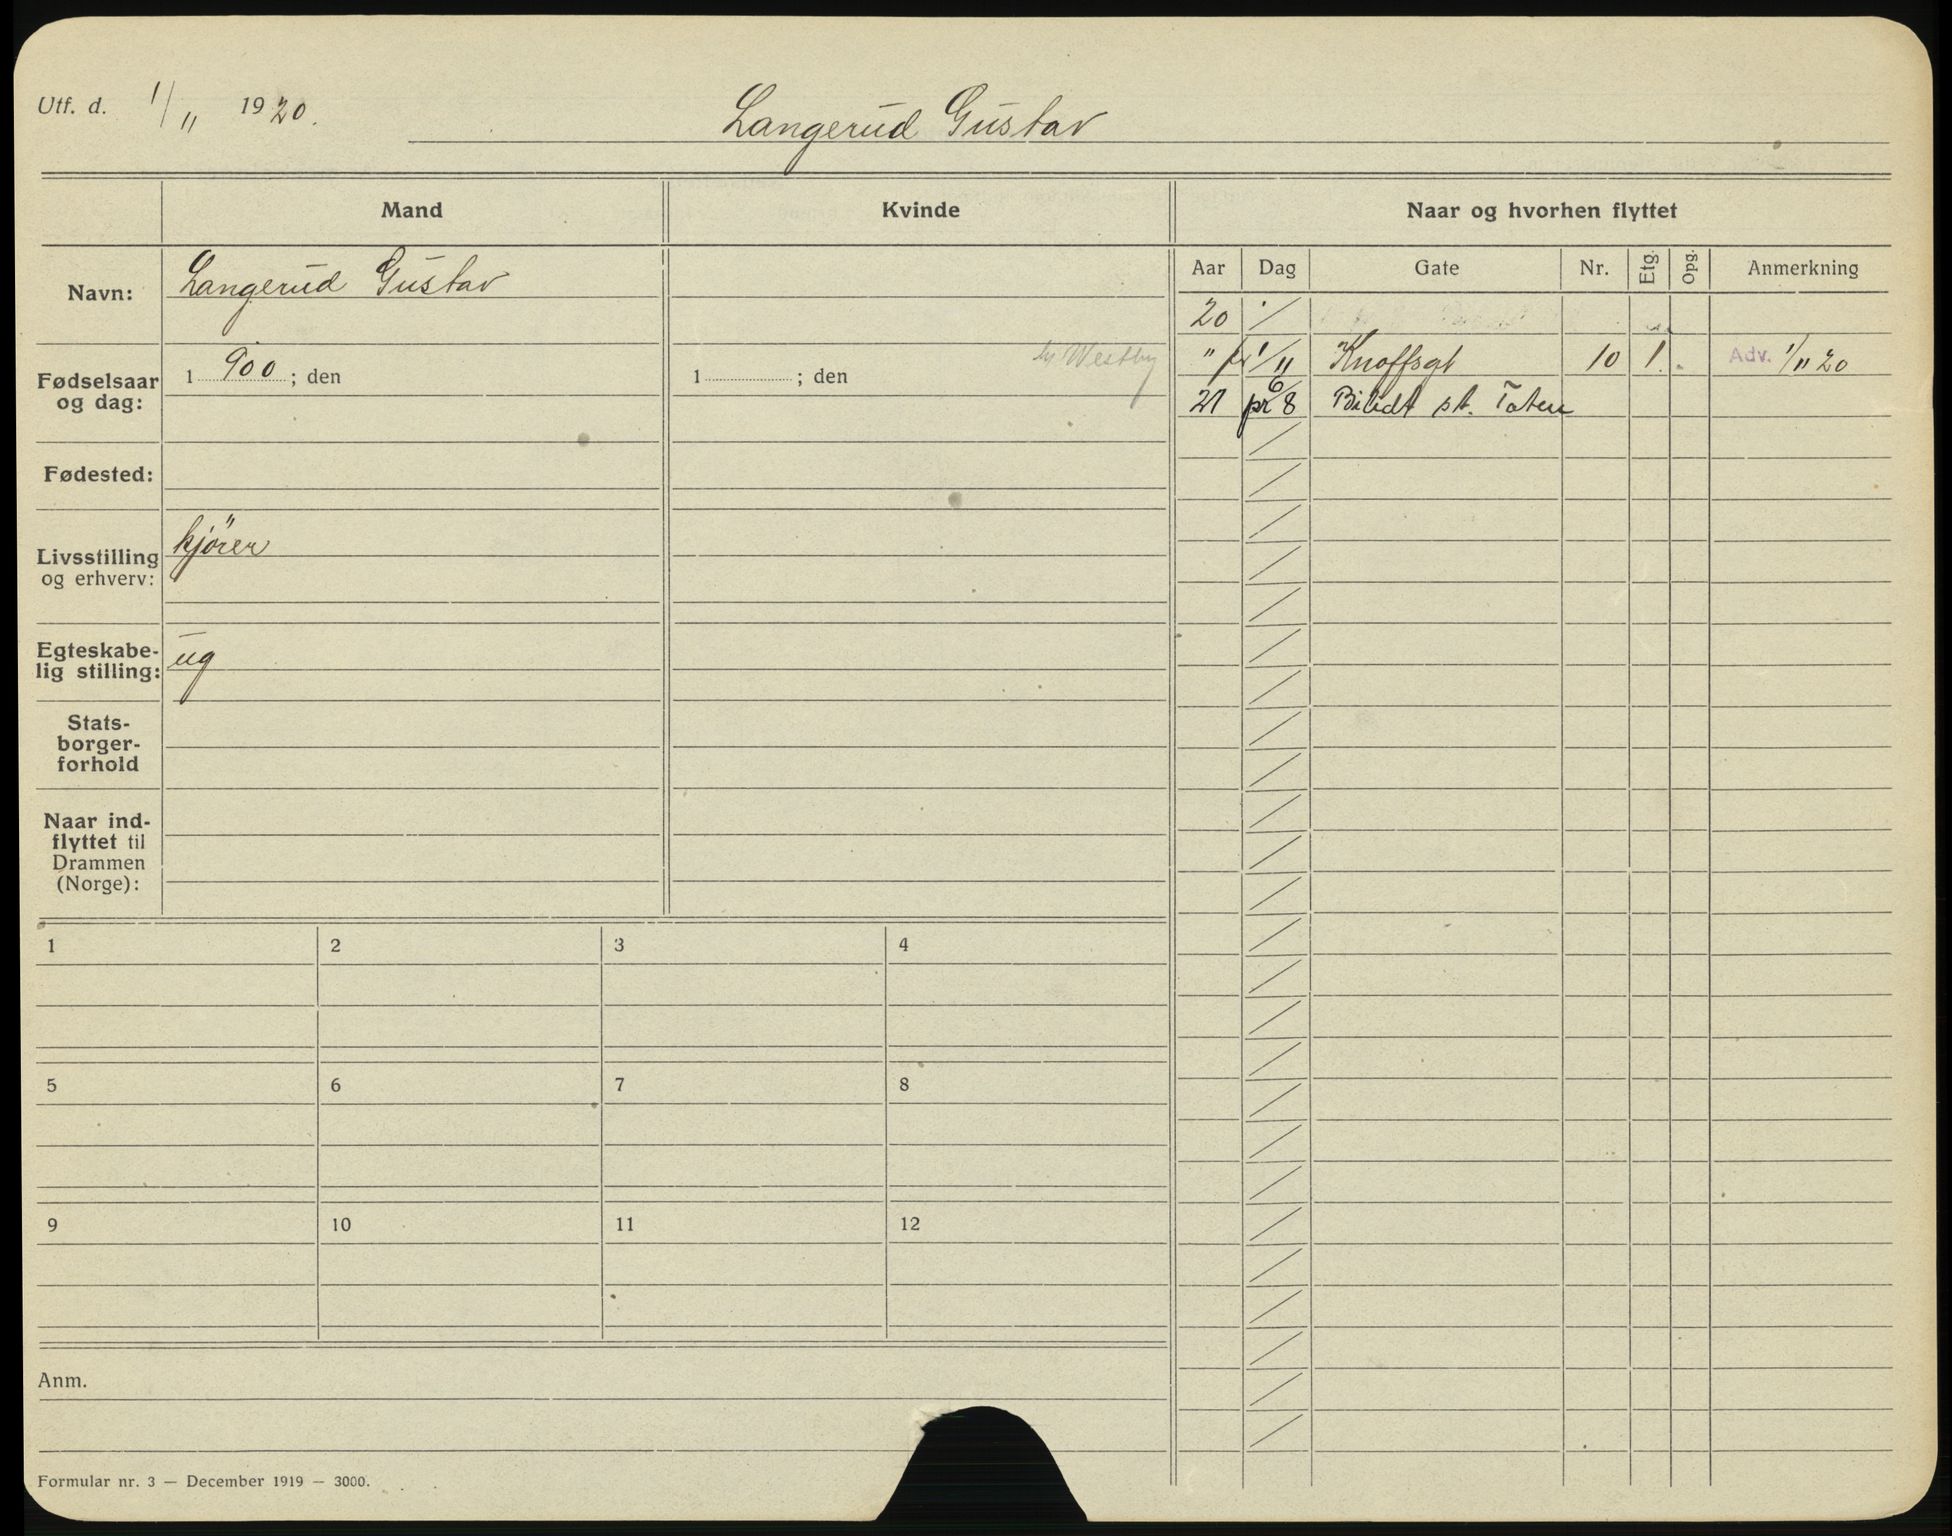 Utf. d. 1/11 1920.
Langerud Gustav
Mand
Kvinde
Naar og hvorhen flyttet
Navn:
Langerud Gustav
Fødselsaar og dag:
1900; den
1 ; den
Westby
Fødested:
Livsstilling og erhverv:
kjører
Egteskabe-
lig stilling:
ug
Stats-
borger-
forhold
Naar ind-
flyttet til
Drammen
(Norge):
Aar Dag Gate Nr. Etg. Opg. Anmerkning
20 /
" pr 1/11 Knoffsgt 10 1. Adv. 1/11 20
21 pr 6/8 Bilidt st. Toten
1 2 3 4
5 6 7 8
9 10 11 12
Anm.
Formular nr. 3 — December 1919 — 3000.